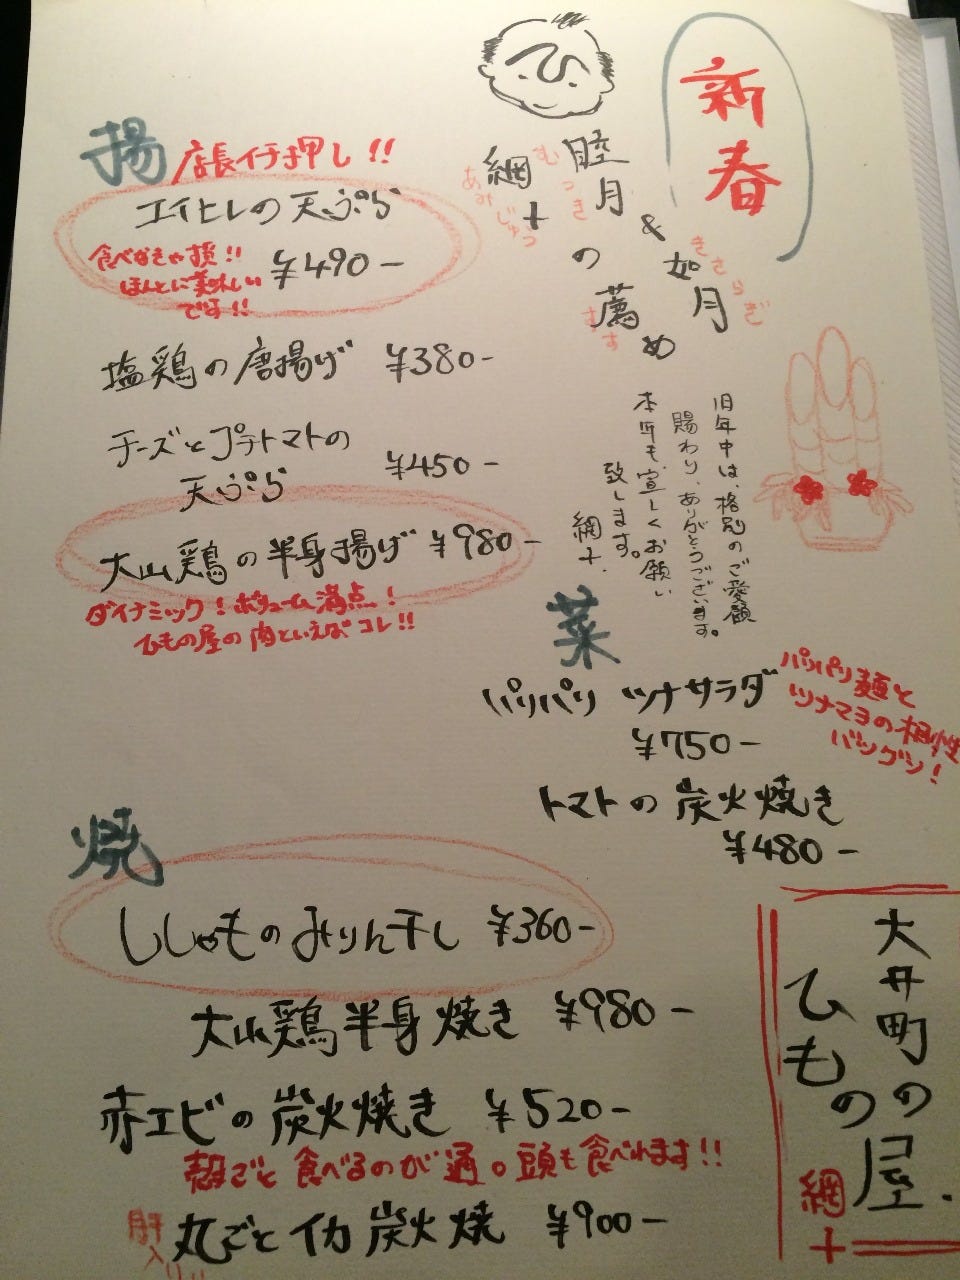 新春
睦月
むつき
&
如月
きさらぎ
網十
あみじゅう
の
薦め
すす
旧年中は、格別のご愛顧
賜わり、ありがとうございます。
本年も宜しくお願い
致します。
網十.
揚
店長イチ押し!!
エイヒレの天ぷら
¥490-
食べなきゃ損!!
ほんとに美味しい
です!!
塩鶏の唐揚げ ¥380-
チーズとプチトマトの
天ぷら
¥450-
大山鶏の半身揚げ ¥980-
ダイナミック!ボリューム満点!
ひもの屋の肉といえばコレ!!
菜
パリパリ ツナサラダ
¥750-
パリパリ麺と
ツナマヨの相性
バツグン!
トマトの炭火焼き
¥480-
焼
ししゃものみりん干し ¥360-
大山鶏半身焼き ¥980-
赤エビの炭火焼き ¥520-
殻ごと食べるのが通。頭も食べれます!!
肝入り
丸ごとイカ炭火焼 ¥900-
大井町の
ひもの屋.
網十